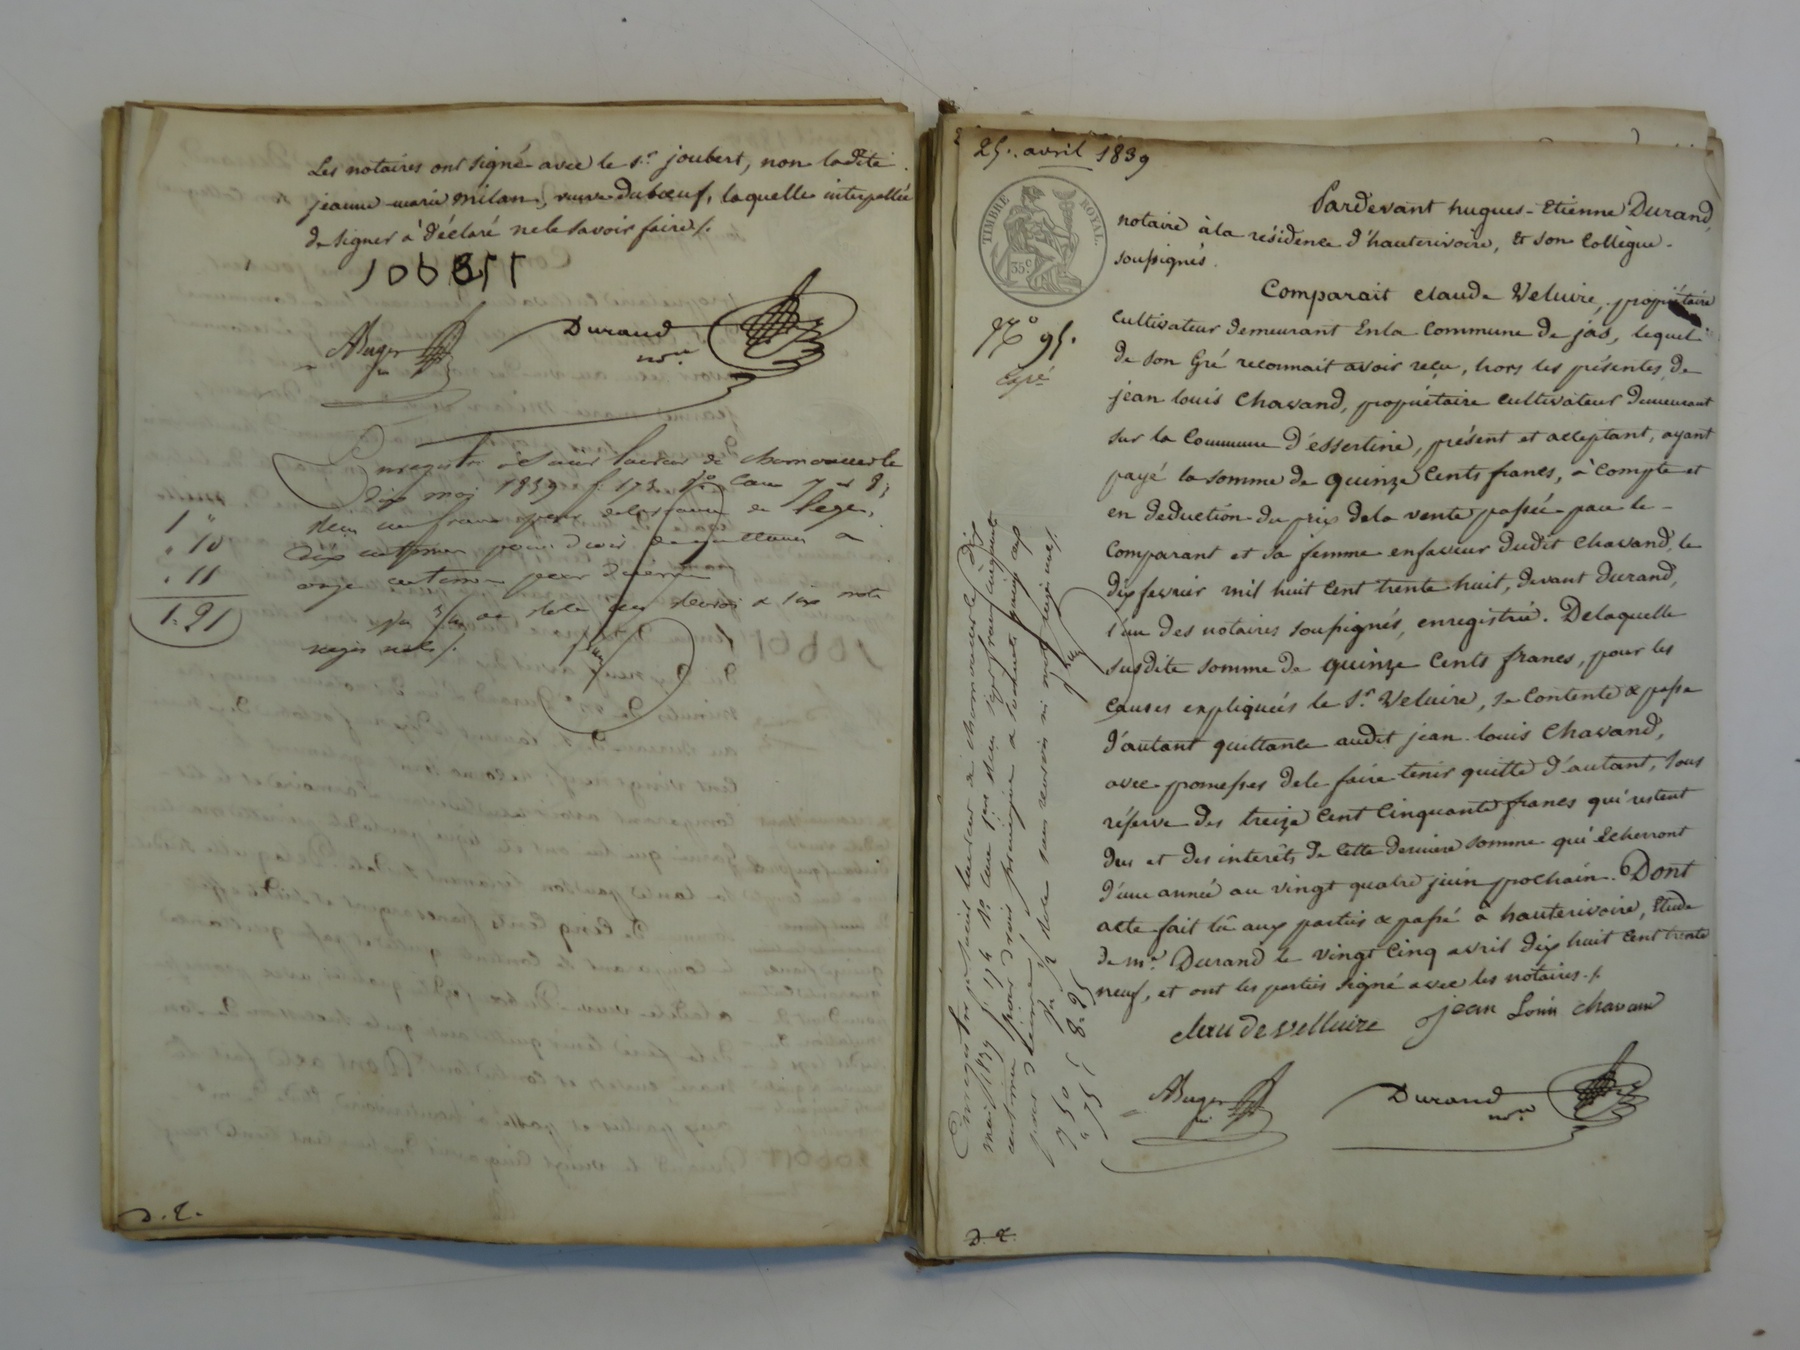 Les notaires ont signé avec le s.r joubert, non ladite
jeanne marie milan, veuve duboeuf, laquelle interpellée
de signer a déclaré ne le savoir faire /.
Durand
n.re
Enregistré à Saint Laurent de chamousset le
dix mai 1839 f. 173
1 "
" 10
" 11
1. 21
d. E.
25. avril 1839
TIMBRE ROYAL.
35 c
N.o 95.
Expé
Pardevant hugues-Etienne Durand,
notaire à la résidence d'hauterivoire, et son Collègue
soussignés.
Comparait claude Veluire, propriétaire
cultivateur demeurant En la Commune de jas, lequel
de son Gré reconnait avoir reçu, hors les présentes, de
jean louis Chavand, propriétaire cultivateur demeurant
sur la Commune d'essertine, présent et acceptant, ayant
payé la somme de quinze Cents francs, à Compte et
en deduction du prix de la vente passée par le
Comparant et sa femme en faveur dudit Chavand, le
dix fevrier mil huit Cent trente huit, devant Durand,
l'un des notaires soussignés, enregistrée. De laquelle
susdite somme de quinze Cents francs, pour les
causes expliquées le S.r Veluire, se Contente & passe
d'autant quittance audit jean louis Chavand,
avec promesses de le faire tenir quitte d'autant, sous
réserve des treize Cent Cinquante francs qui restent
dus et des interêts de Cette derniere somme qui Echerront
d'une année au vingt quatre juin prochain. Dont
acte fait lû aux parties & passé à hauterivoire, Etude
de m.e Durand le vingt Cinq avril dix huit Cent trente
neuf, et ont les parties signé avec les notaires. /.
claude velluire jean Louis chavand
Durand
n.re
Enregistré à Saint Laurent de chamousset le dix
mai 1839 f. 174
7 50
" 75
8. 25
d. E.